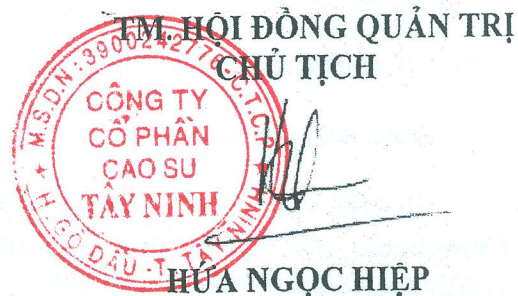 TM. HỘI ĐỒNG QUẢN TRỊ
CHỦ TỊCH
M.S.D.N:3900242776-C.T.C.P
CÔNG TY
CỔ PHẦN
CAO SU
TÂY NINH
H.GÒ DẦU - T. TÂY NINH
HỨA NGỌC HIỆP